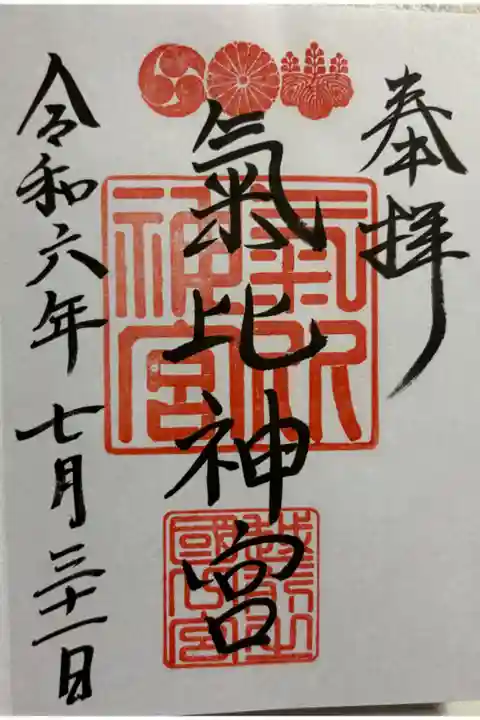 奉拝
氣比神宮
氣比神宮
越前國一宮
令和六年七月三十一日